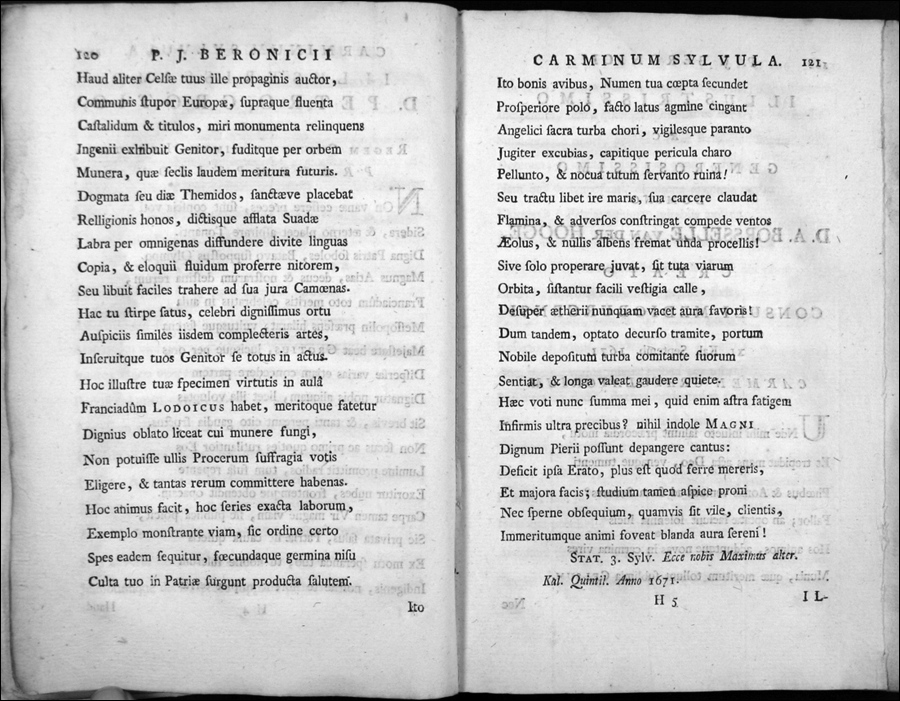 120 P. J. BERONICII
Haud aliter Celſæ tuus ille propaginis auctor,
Communis ſtupor Europæ, ſupraque fluenta
Caſtalidum & titulos, miri monumenta relinquens
Ingenii exhibuit Genitor, fuditque per orbem
Munera, quæ ſeclis laudem meritura futuris.
Dogmata ſeu diæ Themidos, ſanctæve placebat
Relligionis honos, dictisque afflata Suadæ
Labra per omnigenas diffundere divite linguas
Copia, & eloquii fluidum proferre nitorem,
Seu libuit faciles trahere ad ſua jura Camœnas.
Hac tu ſtirpe ſatus, celebri digniſſimus ortu
Auſpiciis ſimiles iisdem complecteris artes,
Inſeruitque tuos Genitor ſe totus in actus.
Hoc illuſtre tuæ ſpecimen virtutis in aulâ
Franciadûm LODOICUS habet, meritoque fatetur
Dignius oblato liceat cui munere fungi,
Non potuiſſe ullis Procerum ſuffragia votis
Eligere, & tantas rerum committere habenas.
Hoc animus facit, hoc ſeries exacta laborum,
Exemplo monſtrante viam, ſic ordine certo
Spes eadem ſequitur, fœcundaque germina niſu
Culta tuo in Patriæ ſurgunt producta ſalutem.
Ito
CARMINUM SYLVULA. 121
Ito bonis avibus, Numen tua cœpta ſecundet
Proſperiore polo, facto latus agmine cingant
Angelici ſacra turba chori, vigilesque paranto
Jugiter excubias, capitique pericula charo
Pellunto, & nocua tutum ſervanto ruina!
Seu tractu libet ire maris, ſua carcere claudat
Flamina, & adverſos conſtringat compede ventos
Æolus, & nullis albens fremat unda procellis!
Sive ſolo properare juvat, ſit tuta viarum
Orbita, ſiſtantur facili veſtigia calle,
Deſuper ætherii nunquam vacet aura favoris!
Dum tandem, optato decurſo tramite, portum
Nobile depoſitum turba comitante ſuorum
Sentiat, & longa valeat gaudere quiete.
Hæc voti nunc ſumma mei, quid enim aſtra fatigem
Infirmis ultra precibus? nihil indole MAGNI
Dignum Pierii poſſunt depangere cantus:
Deficit ipſa Erato, plus eſt quod ferre mereris,
Et majora facis; ſtudium tamen aſpice proni
Nec ſperne obſequium, quamvis ſit vile, clientis,
Immeritumque animi foveat blanda aura ſereni!
STAT. 3. Sylv. Ecce nobis Maximus alter.
Kal. Quintil. Anno 1671.
H 5
IL-